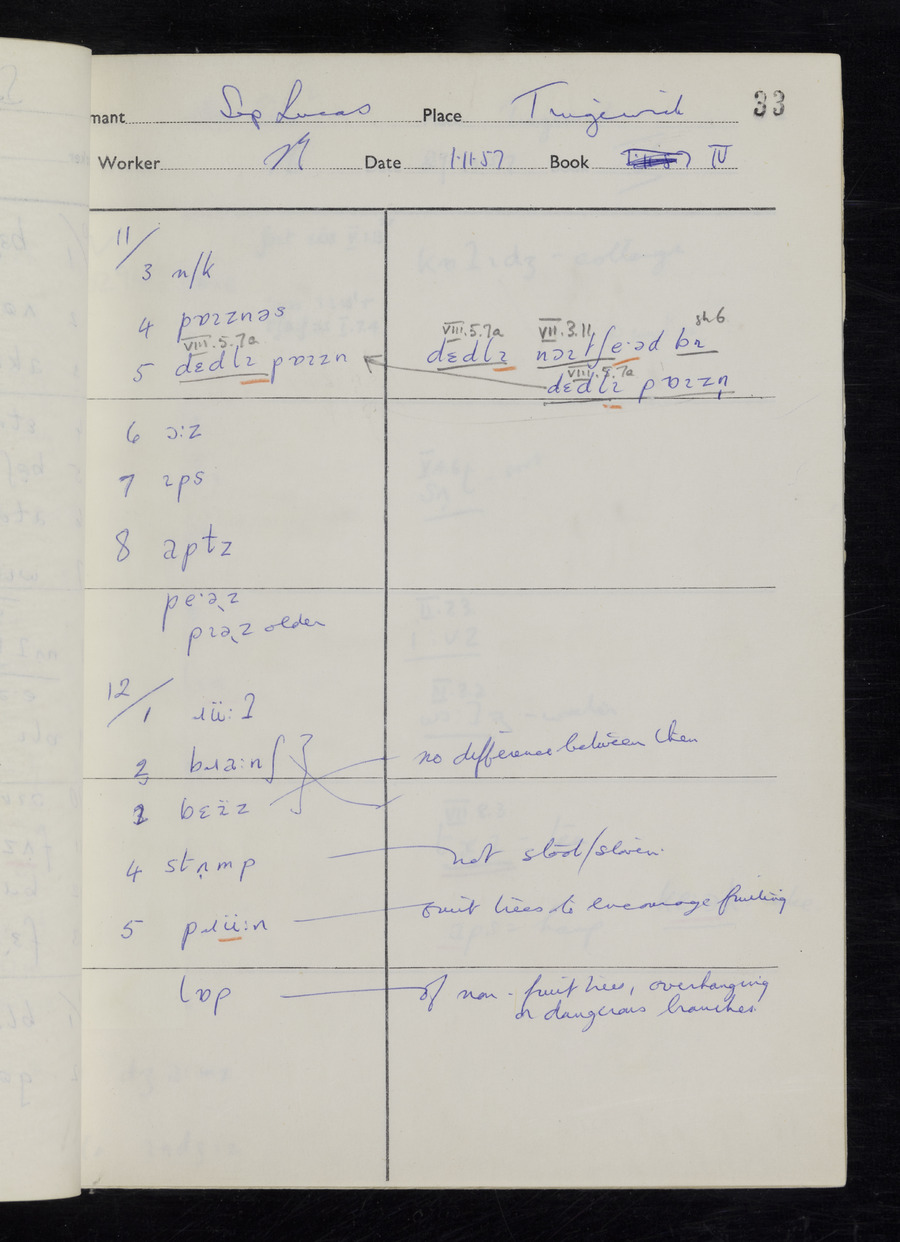 mant Sep Lucas Place Tingewick 33
Worker M Date 1·11·57 Book IV
11/
3 n/k
4 pɒɪznəs
VIII.5.7a
5 dɛdlɪ pɒɪzn
VIII.5.7a VII.3.11 sh 6
dɛdlɪ
VIII.5.7a
dɛdlɪ pɒɪzn̩
6 ɔ:z
7 ɪps
8 aptz
older
12/
1 ɹü:ʔ
2 bɹa:nʃ
3
no difference between them
4 stʌmp
not stool/stoven
5 pɹü:n
fruit trees to encourage fruiting
lɒp
of non-fruit trees, overhanging
or dangerous branches.